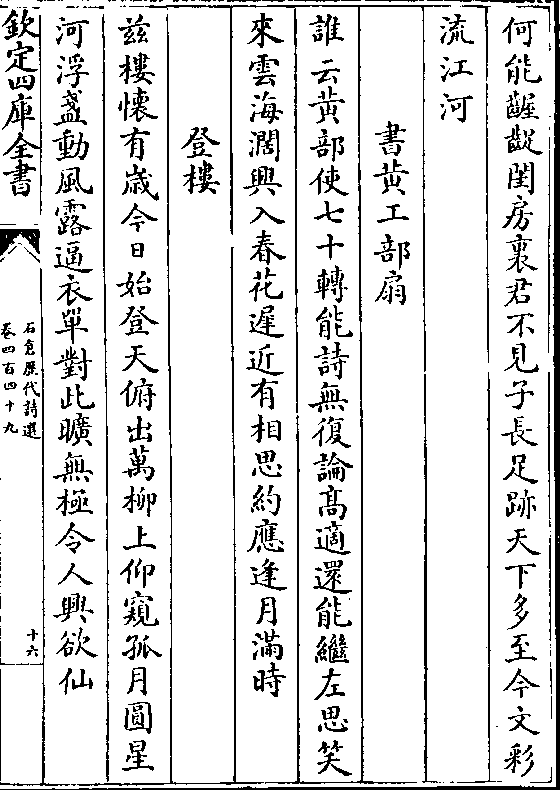 何能齷齪閨房裏君不見子長足跡天下多至今文彩
流江河
書黄工部扇
誰云黄部使七十轉能詩無復論髙適還能繼左思笑
來雲海濶興入春花遲近有相思約應逢月滿時
登樓
兹樓懷有歳今日始登天俯出萬柳上仰窺孤月圓星
河浮盞動風露逼衣單對此曠無極令人興欲仙
欽定四庫全書
石倉歷代詩選
卷四百四十九
十六